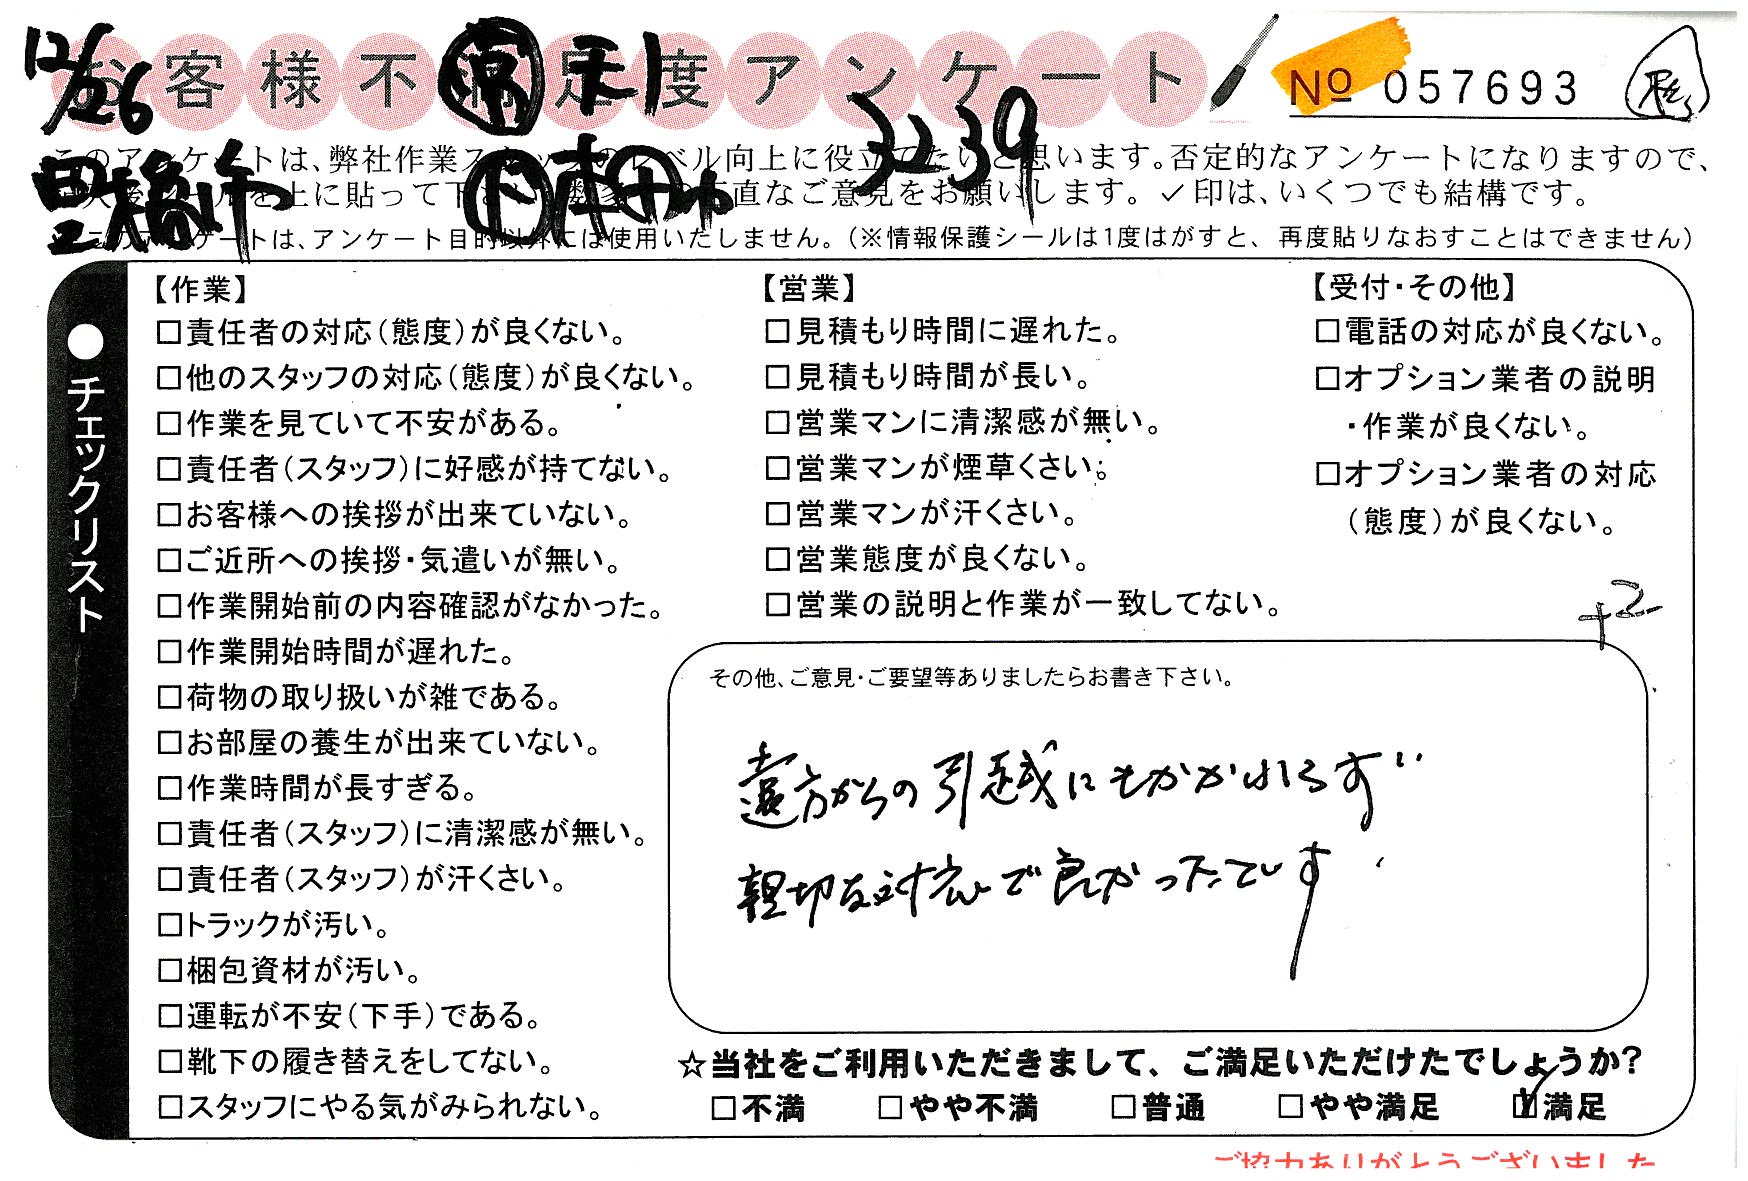 12/26
お客様不満足度アンケート
No 057693
3239
このアンケートは、弊社作業スタッフのレベル向上に役立てたいと思います。否定的なアンケートになりますので、
を上に貼って下さい 直なご意見をお願いします。✓印は、いくつでも結構です。
このアンケートは、アンケート目的以外には使用いたしません。(※情報保護シールは1度はがすと、再度貼りなおすことはできません)
●チェックリスト
【作業】
□責任者の対応(態度)が良くない。
□他のスタッフの対応(態度)が良くない。
□作業を見ていて不安がある。
□責任者(スタッフ)に好感が持てない。
□お客様への挨拶が出来ていない。
□ご近所への挨拶・気遣いが無い。
□作業開始前の内容確認がなかった。
□作業開始時間が遅れた。
□荷物の取り扱いが雑である。
□お部屋の養生が出来ていない。
□作業時間が長すぎる。
□責任者(スタッフ)に清潔感が無い。
□責任者(スタッフ)が汗くさい。
□トラックが汚い。
□梱包資材が汚い。
□運転が不安(下手)である。
□靴下の履き替えをしてない。
□スタッフにやる気がみられない。
【営業】
□見積もり時間に遅れた。
□見積もり時間が長い。
□営業マンに清潔感が無い。
□営業マンが煙草くさい。
□営業マンが汗くさい。
□営業態度が良くない。
□営業の説明と作業が一致してない。
【受付・その他】
□電話の対応が良くない。
□オプション業者の説明
・作業が良くない。
□オプション業者の対応
(態度)が良くない。
+2
その他、ご意見・ご要望等ありましたらお書き下さい。
遠方からの引越にもかかわらず
親切な対応で良かったです
☆当社をご利用いただきまして、ご満足いただけたでしょうか?
□不満 □やや不満 □普通 □やや満足 ☑満足
ご協力ありがとうございました